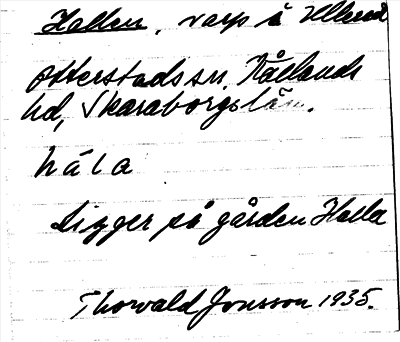 Hallen, varp å Ullerud
Otterstads sn. Kållands
hd, Skaraborgs län.
håla
Ligger på gården Halla
Thorvald Jonsson 1935.